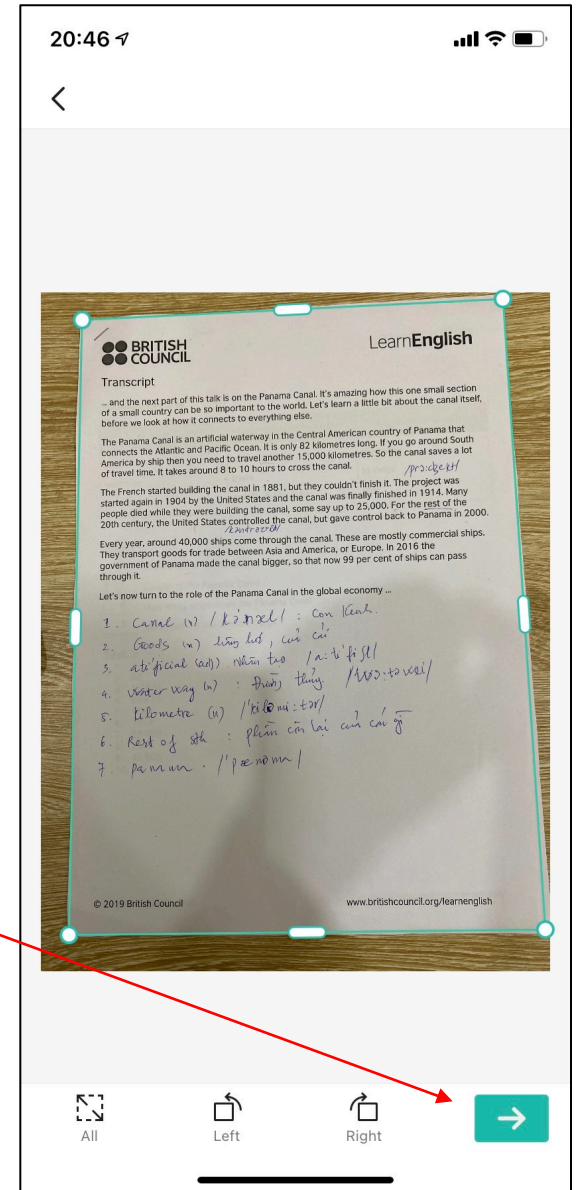 20:46
BRITISH
COUNCIL
LearnEnglish
Transcript
... and the next part of this talk is on the Panama Canal. It's amazing how this one small section
of a small country can be so important to the world. Let's learn a little bit about the canal itself,
before we look at how it connects to everything else.
The Panama Canal is an artificial waterway in the Central American country of Panama that
connects the Atlantic and Pacific Ocean. It is only 82 kilometres long. If you go around South
America by ship then you need to travel another 15,000 kilometres. So the canal saves a lot
of travel time. It takes around 8 to 10 hours to cross the canal.
The French started building the canal in 1881, but they couldn't finish it. The project was
started again in 1904 by the United States and the canal was finally finished in 1914. Many
people died while they were building the canal, some say up to 25,000. For the rest of the
20th century, the United States controlled the canal, but gave control back to Panama in 2000.
Every year, around 40,000 ships come through the canal. These are mostly commercial ships.
They transport goods for trade between Asia and America, or Europe. In 2016 the
government of Panama made the canal bigger, so that now 99 per cent of ships can pass
through it.
Let's now turn to the role of the Panama Canal in the global economy ...
1. Canal (n) : Con Kênh.
2. Goods (n) hàng hoá, của cải
3. (adj) nhân tạo
4. water way (n) : đường thủy
5. kilometre (n)
6. Rest of sth : phần còn lại của cái gì
7.
© 2019 British Council
www.britishcouncil.org/learnenglish
All
Left
Right